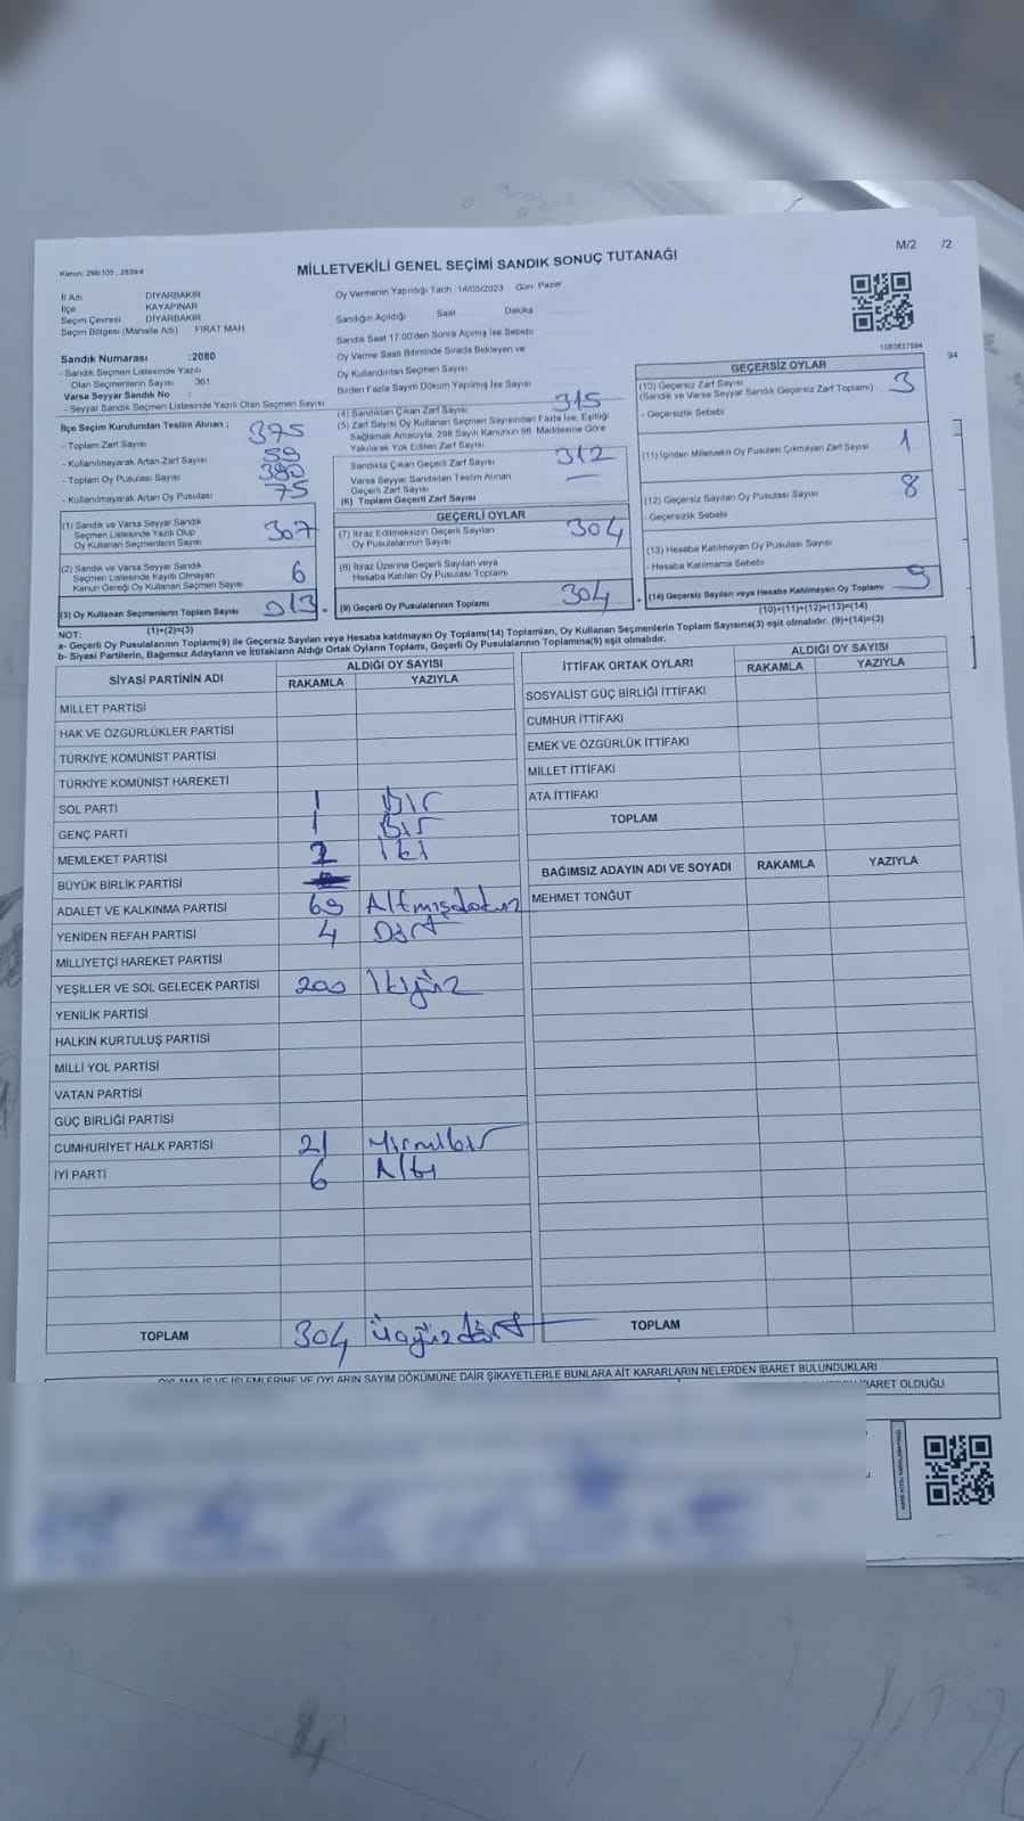 Kanun: 298/105, 2839/4
MİLLETVEKİLİ GENEL SEÇİMİ SANDIK SONUÇ TUTANAĞI
M/2 /2
İl Adı DİYARBAKIR
İlçe KAYAPINAR
Seçim Çevresi DİYARBAKIR
Seçim Bölgesi (Mahalle Adı) FIRAT MAH
Sandık Numarası :2080
- Sandık Seçmen Listesinde Yazılı
Olan Seçmenlerin Sayısı 361
Varsa Seyyar Sandık No :
- Seyyar Sandık Seçmen Listesinde Yazılı Olan Seçmen Sayısı
İlçe Seçim Kurulundan Teslim Alınan :
- Toplam Zarf Sayısı 375
- Kullanılmayarak Artan Zarf Sayısı 59
- Toplam Oy Pusulası Sayısı 380
- Kullanılmayarak Artan Oy Pusulası 75
(1) Sandık ve Varsa Seyyar Sandık
Seçmen Listesinde Yazılı Olup
Oy Kullanan Seçmenlerin Sayısı 307
(2) Sandık ve Varsa Seyyar Sandık
Seçmen Listesinde Kayıtlı Olmayan
Kanun Gereği Oy Kullanan Seçmen Sayısı 6
(3) Oy Kullanan Seçmenlerin Toplam Sayısı 313
(1)+(2)=(3)
Oy Vermenin Yapıldığı Tarih :14/05/2023 Gün: Pazar
Sandığın Açıldığı Saat Dakika
Sandık Saat 17.00'den Sonra Açılmış İse Sebebi
Oy Verme Saati Bitiminde Sırada Bekleyen ve
Oy Kullandırılan Seçmen Sayısı
Birden Fazla Sayım Döküm Yapılmış İse Sayısı
(4) Sandıktan Çıkan Zarf Sayısı 315
(5) Zarf Sayısı Oy Kullanan Seçmen Sayısından Fazla İse, Eşitliği
Sağlamak Amacıyla, 298 Sayılı Kanunun 98. Maddesine Göre
Yakılarak Yok Edilen Zarf Sayısı
Sandıkta Çıkan Geçerli Zarf Sayısı 312
Varsa Seyyar Sandıktan Teslim Alınan
Geçerli Zarf Sayısı —
(6) Toplam Geçerli Zarf Sayısı
GEÇERLİ OYLAR
(7) İtiraz Edilmeksizin Geçerli Sayılan
Oy Pusulalarının Sayısı 304
(8) İtiraz Üzerine Geçerli Sayılan veya
Hesaba Katılan Oy Pusulası Toplamı
(9) Geçerli Oy Pusulalarının Toplamı 304
1080837594
94
GEÇERSİZ OYLAR
(10) Geçersiz Zarf Sayısı
(Sandık ve Varsa Seyyar Sandık Geçersiz Zarf Toplamı) 3
- Geçersizlik Sebebi
(11) İçinden Milletvekili Oy Pusulası Çıkmayan Zarf Sayısı 1
(12) Geçersiz Sayılan Oy Pusulası Sayısı 8
- Geçersizlik Sebebi
(13) Hesaba Katılmayan Oy Pusulası Sayısı
- Hesaba Katılmama Sebebi
(14) Geçersiz Sayılan veya Hesaba Katılmayan Oy Toplamı 9
(10)+(11)+(12)+(13)=(14)
NOT:
a- Geçerli Oy Pusulalarının Toplamı(9) ile Geçersiz Sayılan veya Hesaba katılmayan Oy Toplamı(14) Toplamları, Oy Kullanan Seçmenlerin Toplam Sayısına(3) eşit olmalıdır. (9)+(14)=(3)
b- Siyasi Partilerin, Bağımsız Adayların ve İttifakların Aldığı Ortak Oyların Toplamı, Geçerli Oy Pusulalarının Toplamına(9) eşit olmalıdır.
SİYASİ PARTİNİN ADI ALDIĞI OY SAYISI
RAKAMLA YAZIYLA
MİLLET PARTİSİ
HAK VE ÖZGÜRLÜKLER PARTİSİ
TÜRKİYE KOMÜNİST PARTİSİ
TÜRKİYE KOMÜNİST HAREKETİ
SOL PARTİ 1 Bir
GENÇ PARTİ 1 Bir
MEMLEKET PARTİSİ 2 iki
BÜYÜK BİRLİK PARTİSİ
ADALET VE KALKINMA PARTİSİ 69 Altmışdokuz
YENİDEN REFAH PARTİSİ 4 Dört
MİLLİYETÇİ HAREKET PARTİSİ
YEŞİLLER VE SOL GELECEK PARTİSİ 200 İkiyüz
YENİLİK PARTİSİ
HALKIN KURTULUŞ PARTİSİ
MİLLİ YOL PARTİSİ
VATAN PARTİSİ
GÜÇ BİRLİĞİ PARTİSİ
CUMHURİYET HALK PARTİSİ 21 Yirmibir
İYİ PARTİ 6 Altı
TOPLAM 304 üçyüzdört
İTTİFAK ORTAK OYLARI ALDIĞI OY SAYISI
RAKAMLA YAZIYLA
SOSYALİST GÜÇ BİRLİĞİ İTTİFAKI
CUMHUR İTTİFAKI
EMEK VE ÖZGÜRLÜK İTTİFAKI
MİLLET İTTİFAKI
ATA İTTİFAKI
TOPLAM
BAĞIMSIZ ADAYIN ADI VE SOYADI RAKAMLA YAZIYLA
MEHMET TONĞUT
TOPLAM
OYLAMA İŞ VE İŞLEMLERİNE VE OYLARIN SAYIM DÖKÜMÜNE DAİR ŞİKAYETLERLE BUNLARA AİT KARARLARIN NELERDEN İBARET BULUNDUKLARI
İBARET OLDUĞU